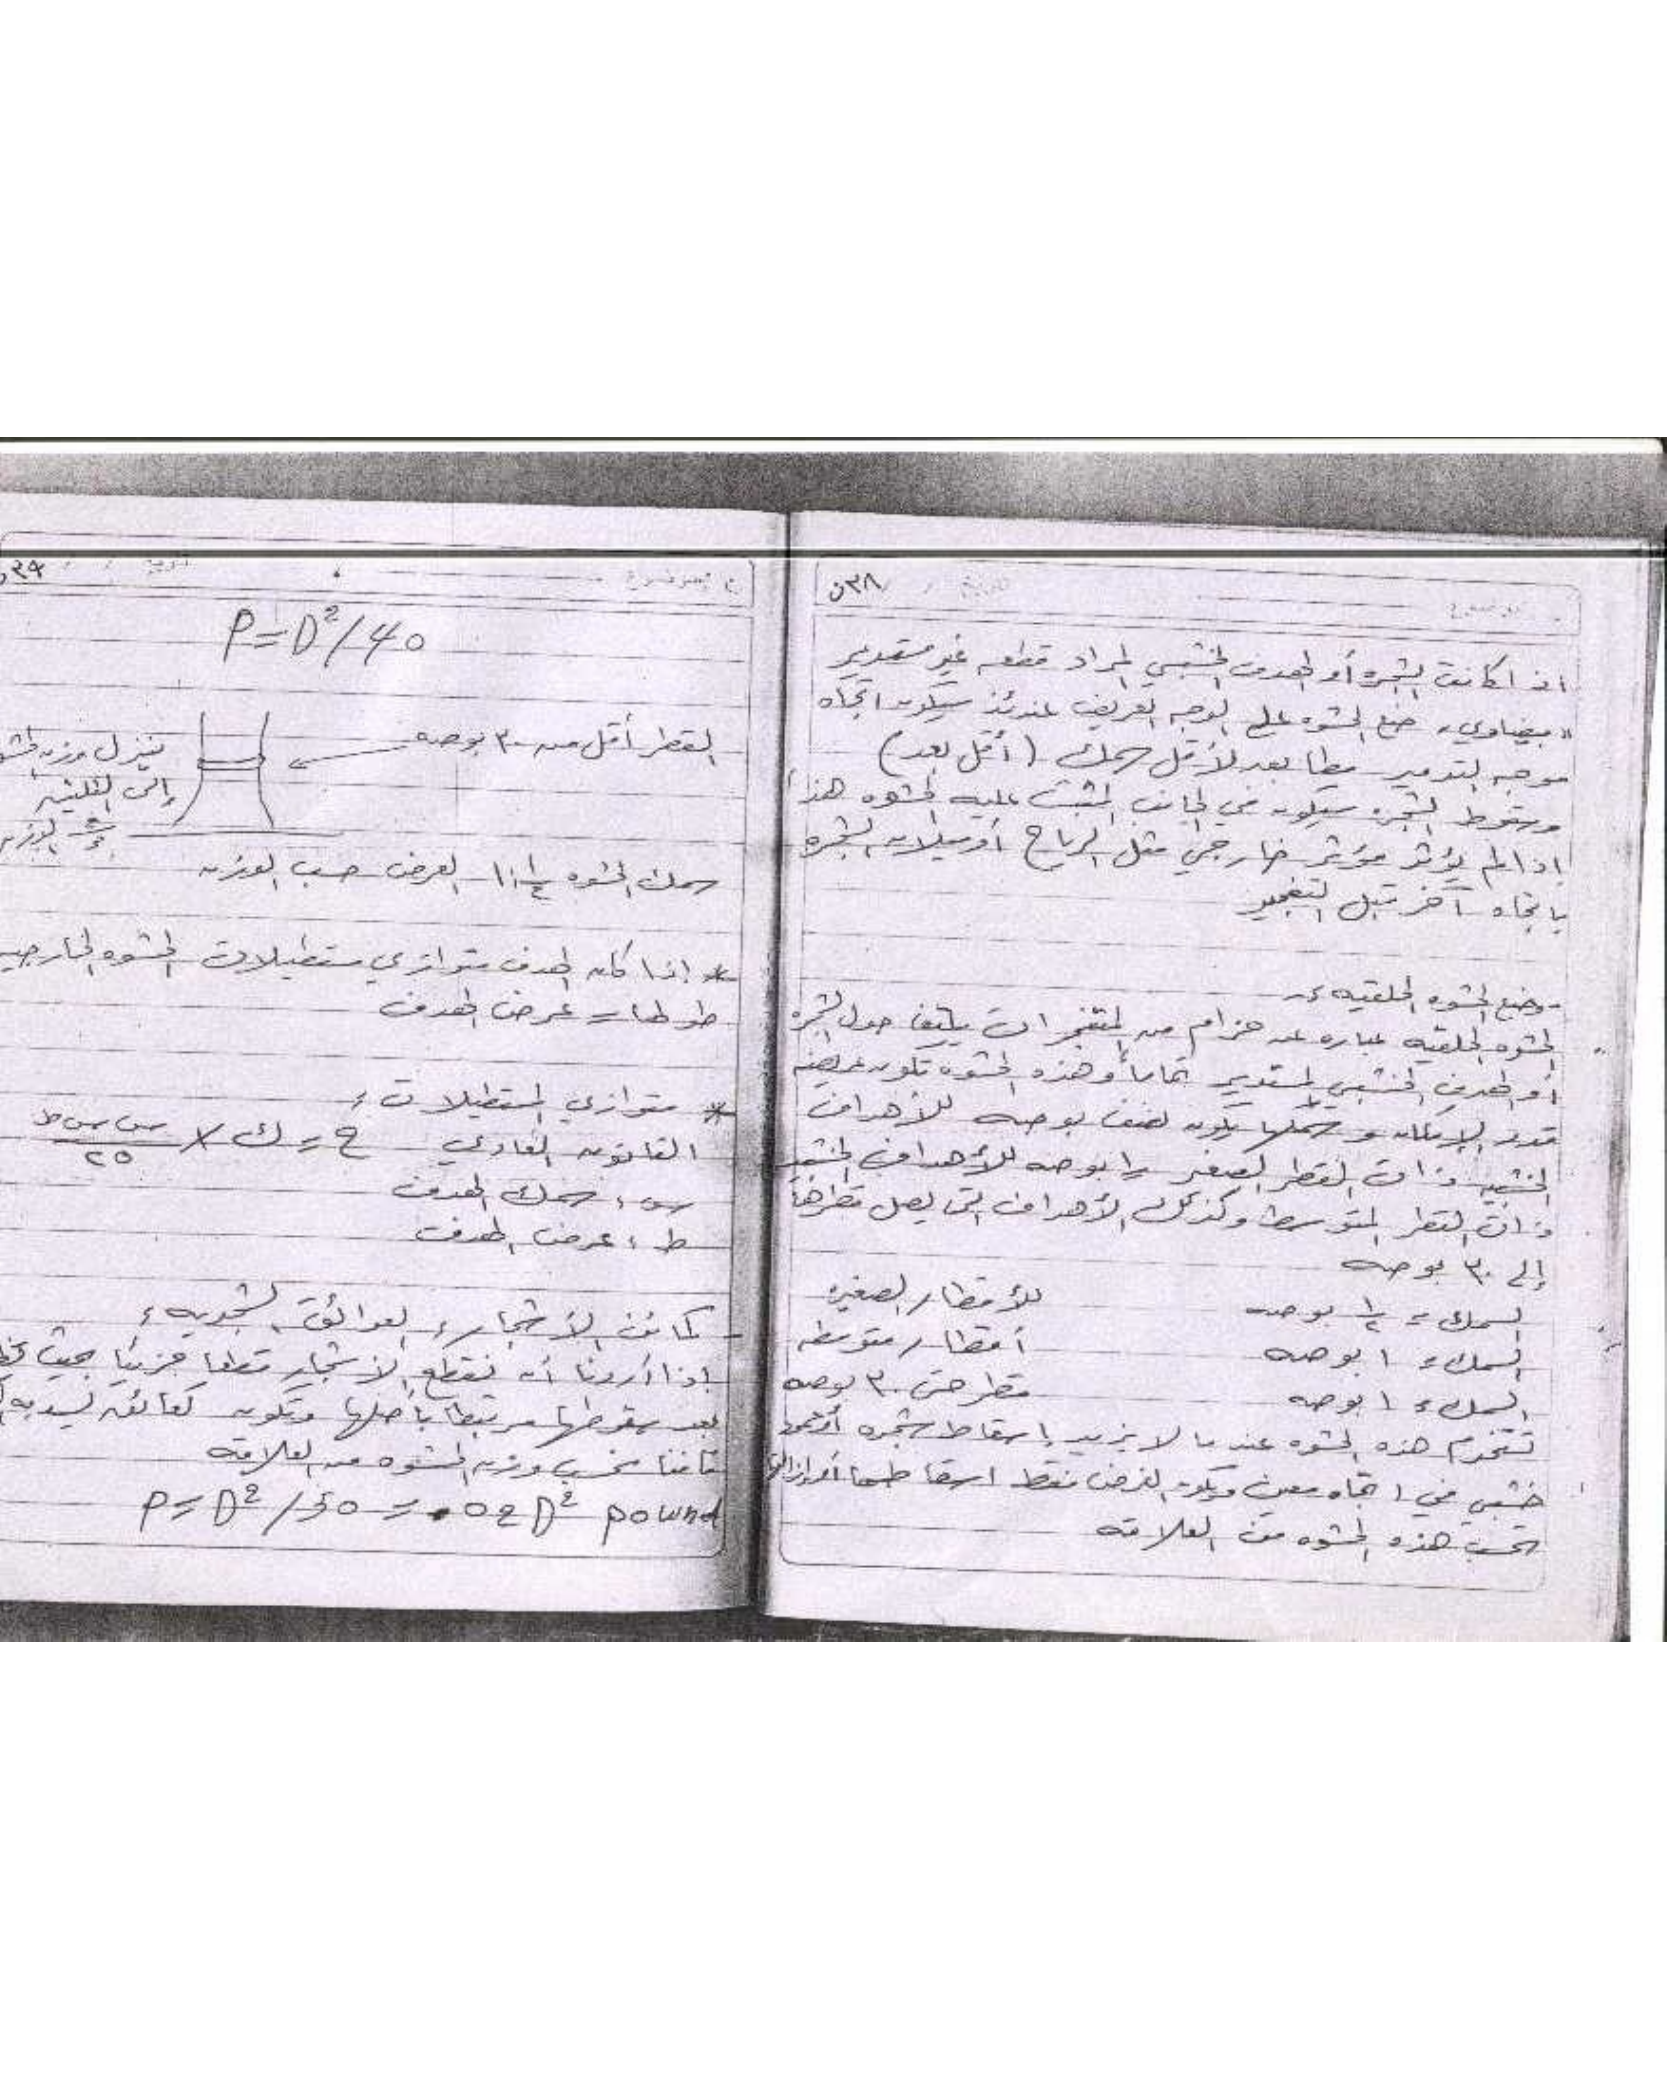 ن٣٨
اذا كانت الشجره أو الهدف الخشبي المراد قطعه غير مستدير
"بيضاوي" ضع الحشوه على الوجه العريض عندئذ سيكون اتجاه
موجه التدمير مطابعد لأقل سمك (أقل بعد)
وسقوط الشجره سيكون في الجانب المثبت عليه الحشوه هذا
إذا لم يؤثر مؤثر خارجي مثل الرياح أو ميلان الشجره
باتجاه آخر قبل التفجير
- وضع الحشوه الحلقيه :-
الحشوه الحلقيه عباره عن حزام من المتفجرات يلتف حول الشجره
أو الهدف الخشبي المستدير تماماً وهذه الحشوه تكون عريضه
قدر الإمكان وسمكها يكون نصف بوصه للأهداف
الخشبيه ذات القطر الصغير و١ بوصه للأهداف الخشبيه
ذات القطر المتوسط وكذلك الأهداف التي يصل قطرها
إلى ٣٠ بوصه
السمك = ١/٢ بوصه للأقطار الصغيره
السمك = ١ بوصه أقطار متوسطه
السمك = ١ بوصه قطر حتى ٣٠ بوصه
تستخدم هذه الحشوه عندما لا نريد إسقاط شجره أو عمود
خشبي في اتجاه معين ويكون الغرض فقط اسقاطها أو ازالتها
تحسب هذه الحشوه من العلاقه
٣٩
P = D²/40
القطر أقل من ٣٠ بوصه
ننزل وزن الحشوه
إلى الثلثين
الوزن
سمك الحشوه العرض حسب الوزن
* إذا كان الهدف متوازي مستطيلات الحشوه الخارجيه
طولها = عرض الهدف
* متوازي المستطيلات :
القانون العادي ح = ك × س س ط / ٢٥
س : سمك الهدف
ط : عرض الهدف
- كمائن الأشجار : العوائق الشجريه :
إذا أردنا أن نقطع الأشجار قطعا جزئياً بحيث
بعد سقوطها مرتبطا بأصلها وتكون كعائق
فإننا نحسب وزن الحشوه من العلاقه
P = D²/50 = .02 D² pound